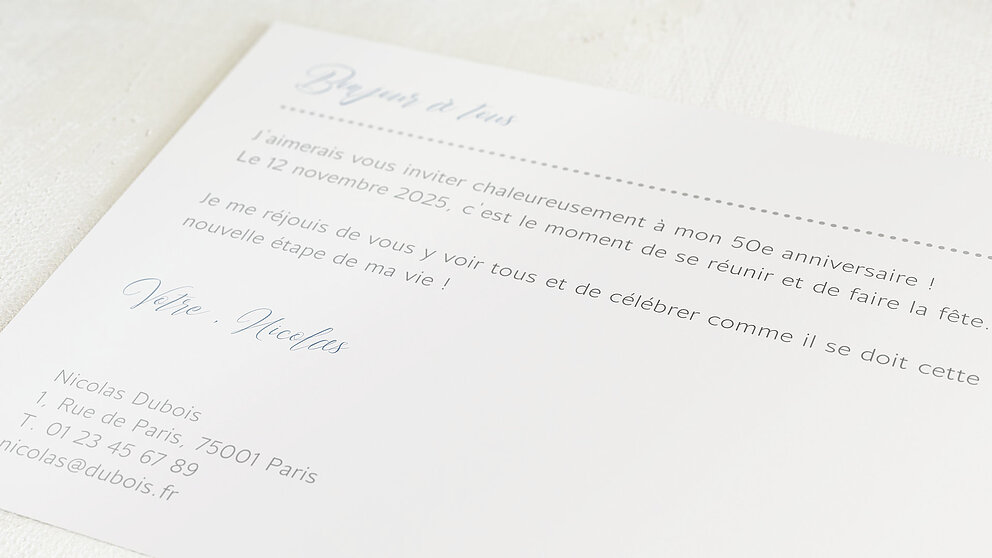 Bonjour à tous
J'aimerais vous inviter chaleureusement à mon 50e anniversaire !
Le 12 novembre 2025, c'est le moment de se réunir et de faire la fête.
Je me réjouis de vous y voir tous et de célébrer comme il se doit cette
nouvelle étape de ma vie !
Votre , Nicolas
Nicolas Dubois
1, Rue de Paris, 75001 Paris
T. 01 23 45 67 89
nicolas@dubois.fr